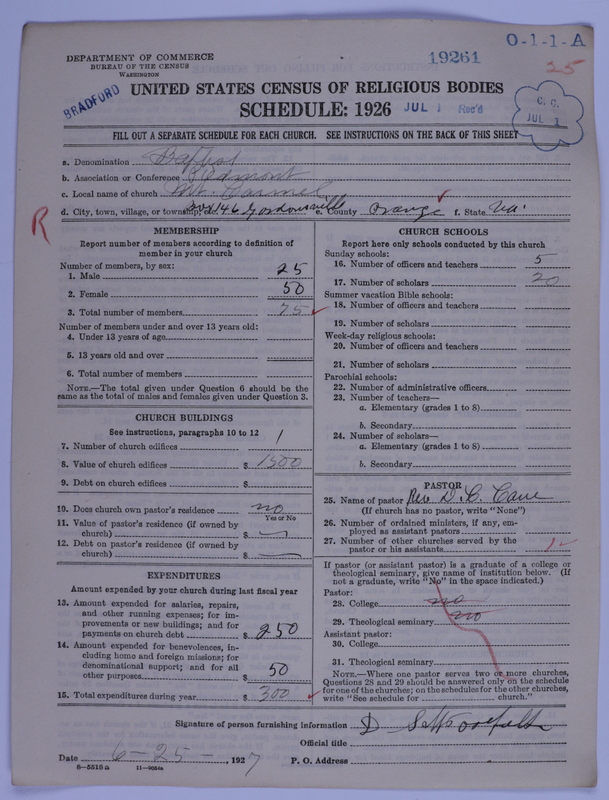 O-1-1-A
19261
25
DEPARTMENT OF COMMERCE
BUREAU OF THE CENSUS
WASHINGTON
BRADFORD
UNITED STATES CENSUS OF RELIGIOUS BODIES
SCHEDULE: 1926
JUL 1 Rec'd
C. C.
JUL 1
FILL OUT A SEPARATE SCHEDULE FOR EACH CHURCH. SEE INSTRUCTIONS ON THE BACK OF THIS SHEET
a. Denomination Baptist
b. Association or Conference Piedmont
c. Local name of church Mt. Carmel
d. City, town, village, or township, etc. Box 146 Gordonsville e. County Orange f. State Va.
R
MEMBERSHIP
Report number of members according to definition of member in your church
Number of members, by sex:
1. Male 25
2. Female 50
3. Total number of members 75
Number of members under and over 13 years old:
4. Under 13 years of age
5. 13 years old and over
6. Total number of members
NOTE.—The total given under Question 6 should be the
same as the total of males and females given under Question 3.
CHURCH BUILDINGS
See instructions, paragraphs 10 to 12
7. Number of church edifices 1
8. Value of church edifices $ 1500
9. Debt on church edifices $
10. Does church own pastor's residence no
Yes or No
11. Value of pastor's residence (if owned by
church) $
12. Debt on pastor's residence (if owned by
church) $
EXPENDITURES
Amount expended by your church during last fiscal year
13. Amount expended for salaries, repairs,
and other running expenses; for im-
provements or new buildings; and for
payments on church debt $ 250
14. Amount expended for benevolences, in-
cluding home and foreign missions; for
denominational support; and for all
other purposes $ 50
15. Total expenditures during year $ 300
CHURCH SCHOOLS
Report here only schools conducted by this church
Sunday schools:
16. Number of officers and teachers 5
17. Number of scholars 20
Summer vacation Bible schools:
18. Number of officers and teachers
19. Number of scholars
Week-day religious schools:
20. Number of officers and teachers
21. Number of scholars
Parochial schools:
22. Number of administrative officers
23. Number of teachers—
a. Elementary (grades 1 to 8)
b. Secondary
24. Number of scholars—
a. Elementary (grades 1 to 8)
b. Secondary
PASTOR
25. Name of pastor Rev. D. C. Cave
(If church has no pastor, write "None")
26. Number of ordained ministers, if any, em-
ployed as assistant pastors
27. Number of other churches served by the
pastor or his assistants
If pastor (or assistant pastor) is a graduate of a college or
theological seminary, give name of institution below. (If
not a graduate, write "No" in the space indicated.)
Pastor:
28. College no
29. Theological seminary no
Assistant pastor:
30. College
31. Theological seminary
NOTE.—Where one pastor serves two or more churches,
Questions 28 and 29 should be answered only on the schedule
for one of the churches; on the schedules for the other churches,
write "See schedule for church."
Signature of person furnishing information D
Official title
Date 6-25-, 1927 P. O. Address
8-5518a 11-9054a